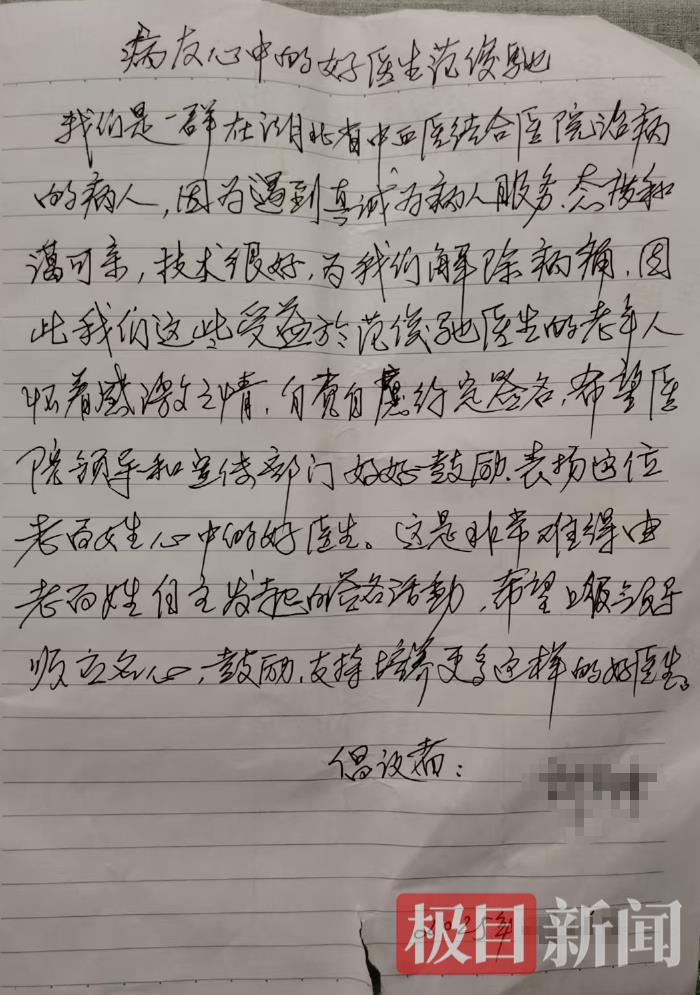 病友心中的好医生范俊驰
我们是一群在湖北省中西医结合医院治病
的病人，因为遇到真诚为病人服务、态度和
蔼可亲，技术很好，为我们解除病痛，因
此我们这些受益於范俊驰医生的老年人
怀着感激之情，自觉自愿约完签名，希望医
院领导和宣传部门好好鼓励、表扬这位
老百姓心中的好医生。这是非常难得由
老百姓自主发起的签名活动，希望上级领导
顺应名心，鼓励、支持培养更多这样的好医生。
倡议者：
2025年
极目新闻